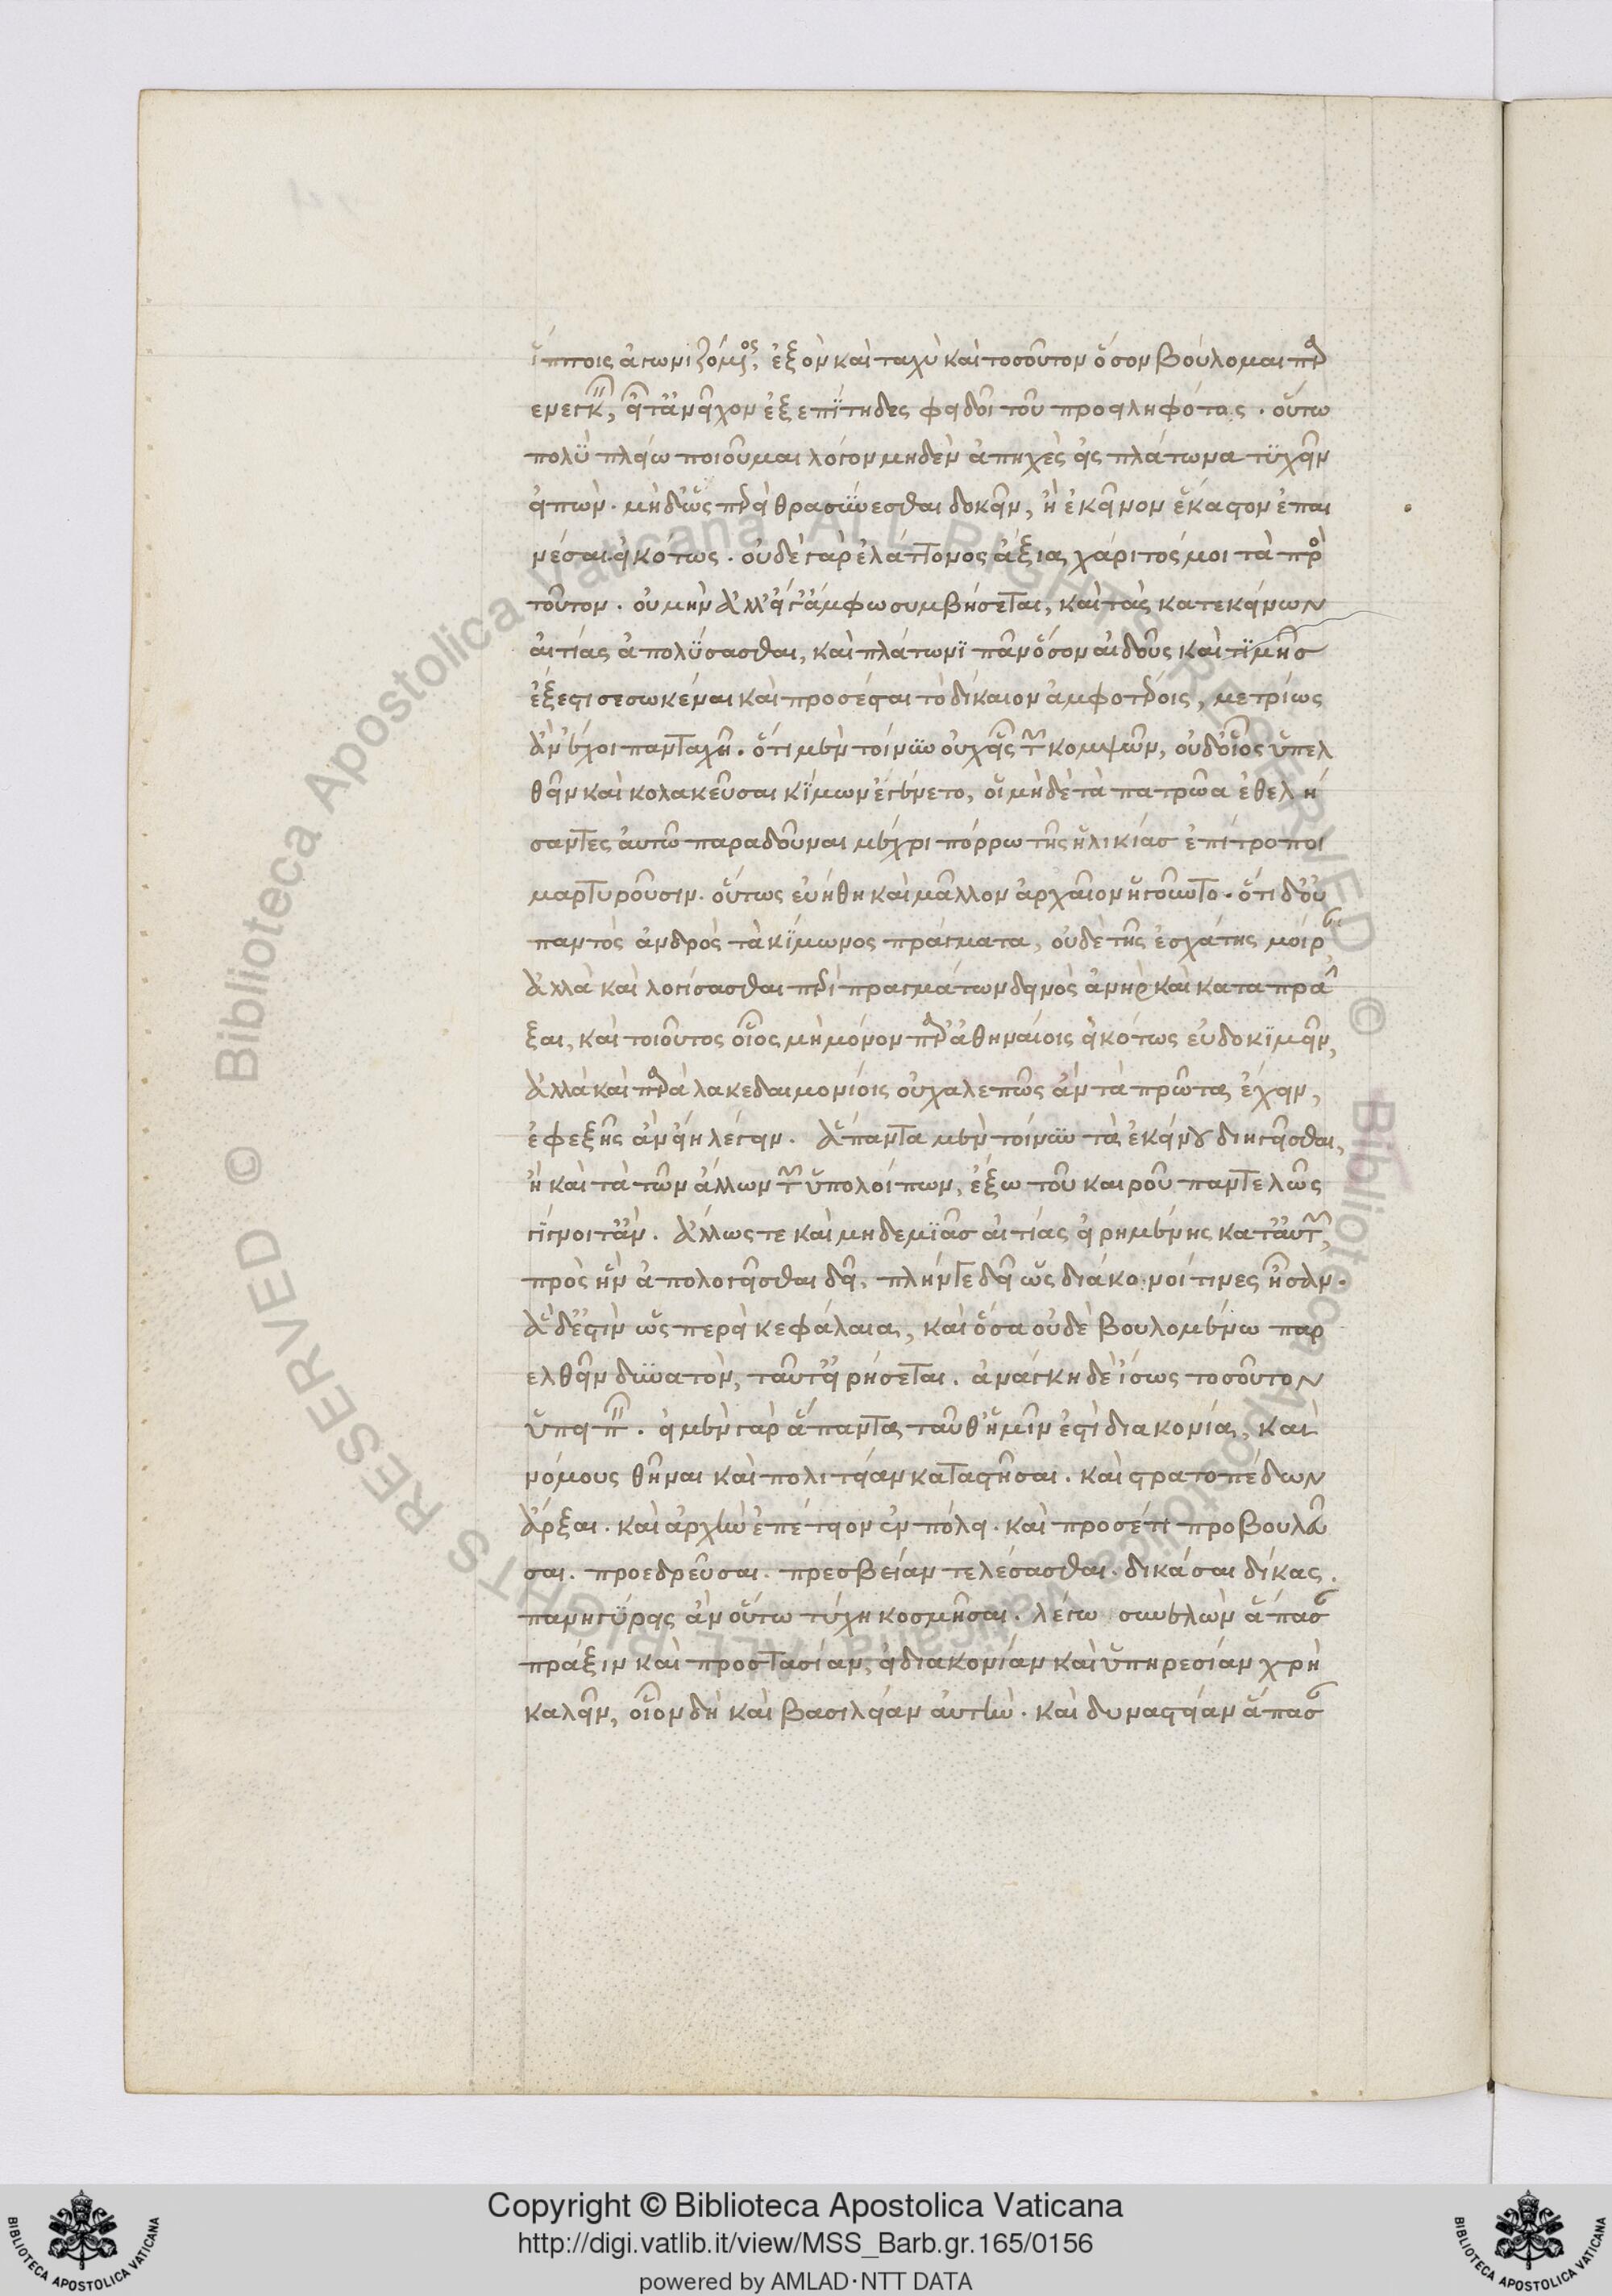 ἵπποις ἀγωνιζόμενος, ἐξὸν καὶ ταχὺ καὶ τοσοῦτον ὅσον βούλομαι παρ
ενεγκεῖν, εἶτ' ἂν εἶχον ἐξεπίτηδες φείδοι τοῦ προειληφότος. οὕτω
πολὺ πλείω ποιοῦμαι λόγον μηδὲν ἀπηχὲς εἰς πλάτωνα τυχεῖν
εἰπὼν. μηδ' ὡς περὰ θρασύνεσθαι δοκεῖν, ἢ ἐκεῖνον ἕκαστον ἐπαι
νέσαι. εἰκότως. οὐδὲ γὰρ ἐλάττονος ἀξία χάριτός μοι τὰ πρὸ
τοῦτον. οὐ μὴν ἀλλ' εἴγ' ἄμφω συμβήσεται, καὶ τὰς κατ' ἐκείνων
αἰτίας ἀπολύσασθαι, καὶ πλάτωνι πᾶν ὅσον αἰδοῦς καὶ τιμῆς
ἔξεστι σεσωκέναι καὶ προσέσται τὸ δίκαιον ἀμφοτέροις, μετρίως
ἂν ἔχοι πανταχῆ. ὅτι μὲν τοίνυν οὐχ εἷς τῶν κομψῶν, οὐδ' οἷος ὑπελ
θεῖν καὶ κολακεῦσαι κίμων ἐγένετο, οἱ μηδὲ τὰ πατρῶα ἐθελή
σαντες αὐτῷ παραδοῦναι μέχρι πόρρω τῆς ἡλικίας ἐπίτροποι
μαρτυροῦσιν. οὕτως εὐήθη καὶ μᾶλλον ἀρχαῖον ἡγοῦντο. ὅτι δ' οὐ
παντὸς ἀνδρὸς τὰ κίμωνος πράγματα, οὐδὲ τῆς ἐσχάτης μοίρας
ἀλλὰ καὶ λογίσασθαι περὶ πραγμάτων δεινὸς ἀνὴρ καὶ καταπρᾶ
ξαι, καὶ τοιοῦτος οἷος μὴ μόνον παρ' ἀθηναίοις εἰκότως εὐδοκιμεῖν,
ἀλλὰ καὶ παρὰ λακεδαιμονίοις οὐ χαλεπῶς ἂν τὰ πρῶτα ἔχειν,
ἐφεξῆς ἂν εἴη λέγειν. ἅπαντα μὲν τοίνυν τὰ ἐκείνου διηγεῖσθαι,
ἢ καὶ τὰ τῶν ἄλλων τῶν ὑπολοίπων, ἔξω τοῦ καιροῦ παντελῶς
γίγνοιτ' ἂν. ἄλλως τε καὶ μηδεμιᾶς αἰτίας εἰρημένης κατ' αὐτῶν,
πρὸς ἣν ἀπολογεῖσθαι δεῖ, πλήν γε δεῖ ὡς διάκονοί τινες ἦσαν.
ἃ δ' ἐστὶν ὥσπερεὶ κεφάλαια, καὶ ὅσα οὐδὲ βουλομένω παρ
ελθεῖν δυνατὸν, ταῦτ' εἰρήσεται. ἀνάγκη δὲ ἴσως τοσοῦτον
ὑπειπεῖν. εἰ μὲν γὰρ ἅπαντα ταῦθ' ἡμῖν ἐστὶ διακονία, καὶ
νόμους θῆναι καὶ πολιτείαν καταστῆσαι. καὶ στρατοπέδων
ἄρξαι. καὶ ἀρχὴν ἐπέτειον ἐν πόλει. καὶ προσέτι προβουλεῦ
σαι. προεδρεῦσαι. πρεσβείαν τελέσασθαι. δικάσαι δίκας.
πανηγύρεις ἂν οὕτω τύχῃ κοσμῆσαι. λέγω συνελὼν ἅπασαν
πράξιν καὶ προστασίαν, εἰ διακονίαν καὶ ὑπηρεσίαν χρὴ
καλεῖν, οἷον δὴ καὶ βασιλείαν αὐτὴν. καὶ δυναστείαν ἅπασαν
Copyright © Biblioteca Apostolica Vaticana
http://digi.vatlib.it/view/MSS_Barb.gr.165/0156
powered by AMLAD·NTT DATA